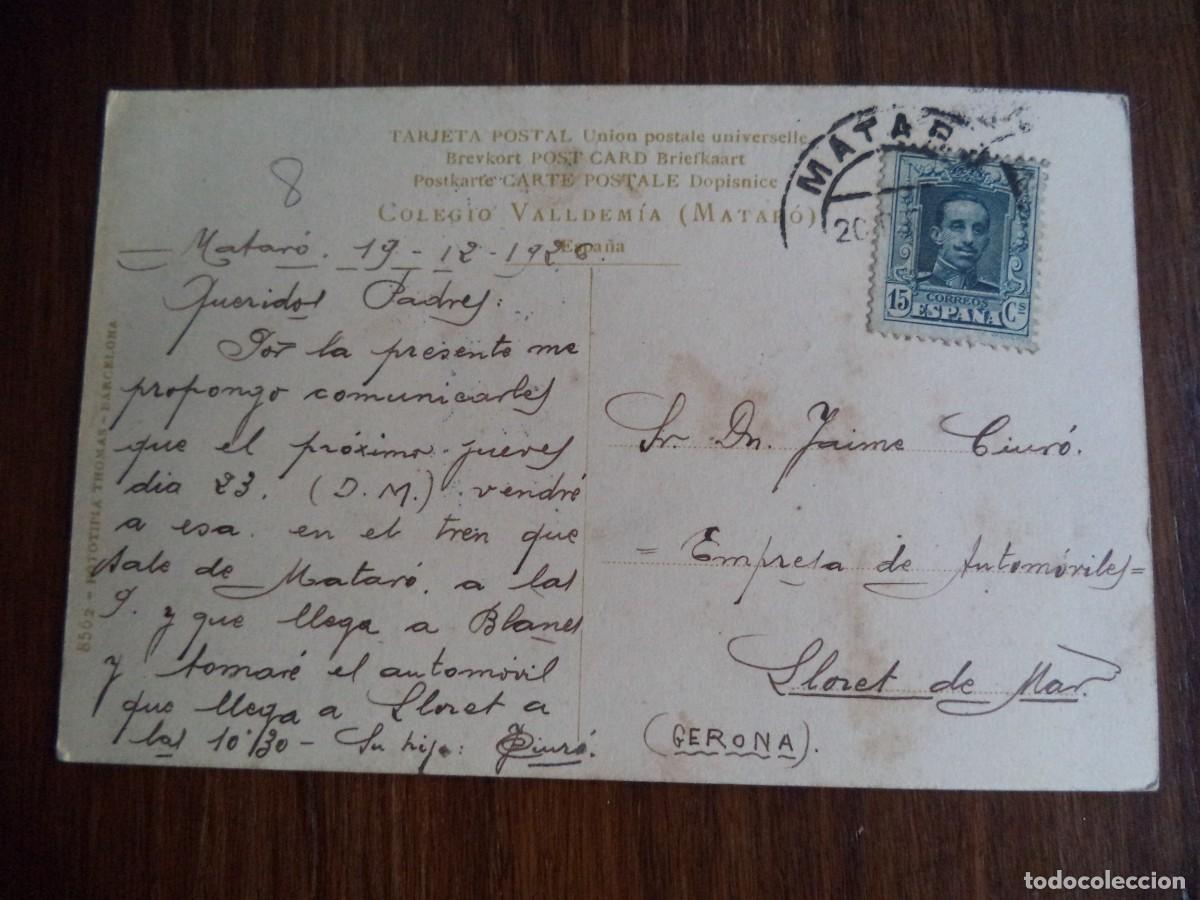 TARJETA POSTAL Union postale universelle
Brevkort POST CARD Briefkaart
Postkarte CARTE POSTALE Dopisnice
COLEGIO VALLDEMÍA (MATARÓ)
España
8
MATAR
20
15 CORREOS Cs
ESPAÑA
Mataró. 19-12-1926
Queridos Padres:
Por la presente me
propongo comunicarles
que el próximo jueves
dia 23. (D. M.) vendré
a esa en el tren que
sale de Mataró, a las
9. y que llega a Blanes
y tomaré el automóvil
que llega a Lloret a
las 10'30 - Su hijo: Ciuró.
Sr. Dn. Jaime Ciuró.
= Empresa de Automóviles =
Lloret de Mar.
(GERONA).
8562 - FOTOTIPIA THOMAS - BARCELONA
todocoleccion